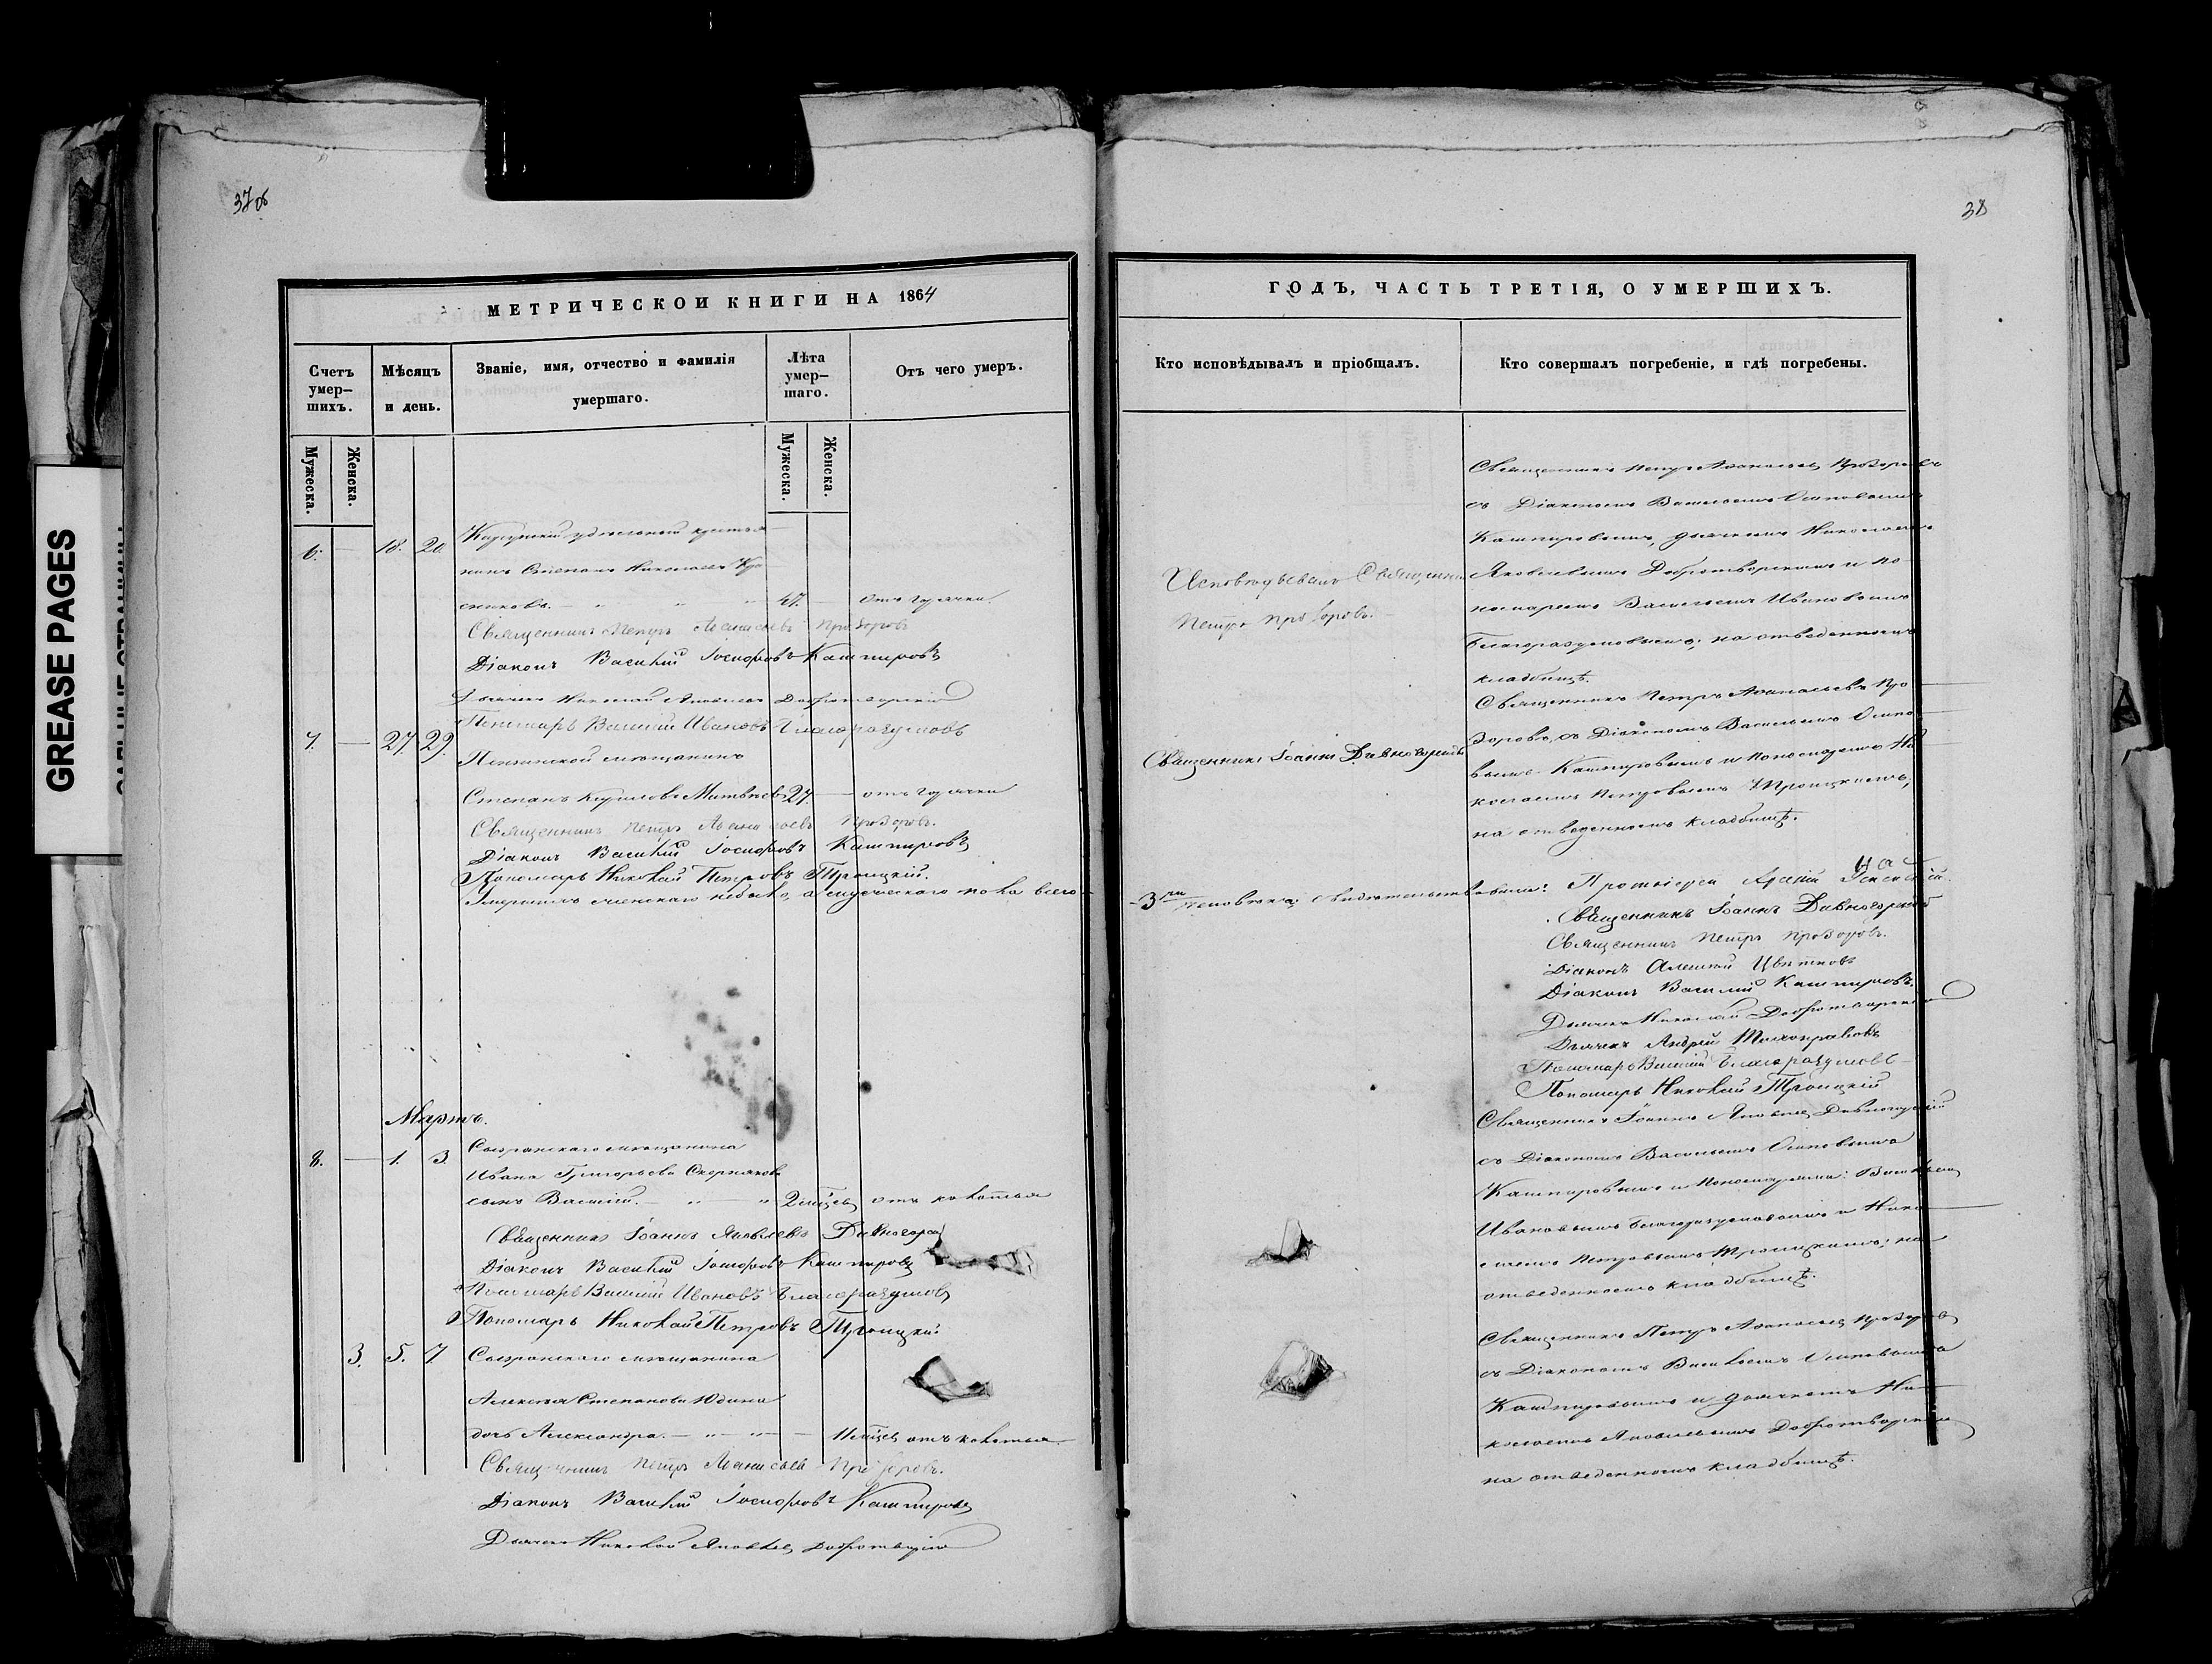 37об
МЕТРИЧЕСКОЙ КНИГИ НА 1864
Счетъ умер-шихъ.
Мѣсяцъ и день.
Званіе, имя, отчество и фамилія умершаго.
Лѣта умер-шаго.
Отъ чего умеръ.
Мужеска.
Женска.
Мужеска.
Женска.
6. — 18. 20
удѣльный крестья-
нинъ Степанъ Николаевъ
47. — отъ горячки.
Священникъ Петръ Аѳанасьевъ Прозоровъ
Діаконъ Василій Іосифовъ Кашпировъ
Дьячекъ Николай Яковлевъ Добротворскій
Пономарь Василій Ивановъ Благоразумовъ
7. — 27. 29.
Пензинской мѣщанинъ
Степанъ Кириловъ Матвѣевъ 27. — отъ горячки
Священникъ Петръ Аѳанасьевъ Прозоровъ.
Діаконъ Василій Іосифовъ Кашпировъ
Пономарь Николай Петровъ Троицкій.
Умершихъ женскаго небыло, а мужескаго пола всего —
Мартъ.
8. — 1. 3.
Сызранскаго мѣщанина
Ивана Григорьева Скорнякова
сынъ Василій. — 2 мѣсцевъ отъ колотья
Священникъ Іоаннъ Яковлевъ Дивногорскій
Діаконъ Василій Іосифовъ Кашпировъ
Пономарь Василій Ивановъ Благоразумовъ
Пономарь Николай Петровъ Троицкій
3. 5. 7.
Сызранскаго мѣщанина
Алексѣя Степанова Юдина
дочь Александра. — мѣсцевъ отъ колотья. —
Священникъ Петръ Аѳанасьевъ Прозоровъ.
Діаконъ Василій Іосифовъ Кашпировъ
Дьячекъ Николай Яковлевъ Добротворскій
38
ГОДЪ, ЧАСТЬ ТРЕТІЯ, О УМЕРШИХЪ.
Кто исповѣдывалъ и пріобщалъ.
Кто совершалъ погребеніе, и гдѣ погребены.
Исповѣдывалъ Священникъ
Петръ Прозоровъ.
Священникъ Петръ Аѳанасьевъ Прозоровъ
съ Діакономъ Васильемъ Осиповымъ
Кашпировымъ, дьячкомъ Николаемъ
Яковлевымъ Добротворскимъ и по-
номаремъ Васильемъ Ивановымъ
Благоразумовымъ; на отведенномъ
кладбищѣ.
Священникъ Іоаннъ Дивногорскій
Священникъ Петръ Аѳанасьевъ Про
зоровъ, съ Діакономъ Васильемъ Осипо
вымъ Кашпировымъ и пономаремъ Ни
колаемъ Петровымъ Троицкимъ,
на отведенномъ кладбищѣ.
3ри человѣка; свидѣтельствовали: Протоіерей
Священникъ Іоаннъ Дивногорскій
Священникъ Петръ Прозоровъ.
Діаконъ Алексѣй Цвѣтковъ
Діаконъ Василій Кашпировъ.
Дьячекъ Николай Добротворскій
Дьячекъ Андрей
Пономарь Василій Благоразумовъ
Пономарь Николай Троицкій
Священникъ Іоаннъ Яковлевъ Дивногорскій
съ Діакономъ Васильемъ Осиповымъ
Кашпировымъ и пономарями: Васильемъ
Ивановымъ Благоразумовымъ и Нико
лаемъ Петровымъ Троицкимъ; на
отведенномъ кладбищѣ.
Священникъ Петръ Аѳанасьевъ Прозоровъ
съ Діакономъ Васильемъ Осиповымъ
Кашпировымъ и дьячкомъ Ни-
колаемъ Яковлевымъ Добротворскимъ
на отведенномъ кладбищѣ.
GREASE PAGES